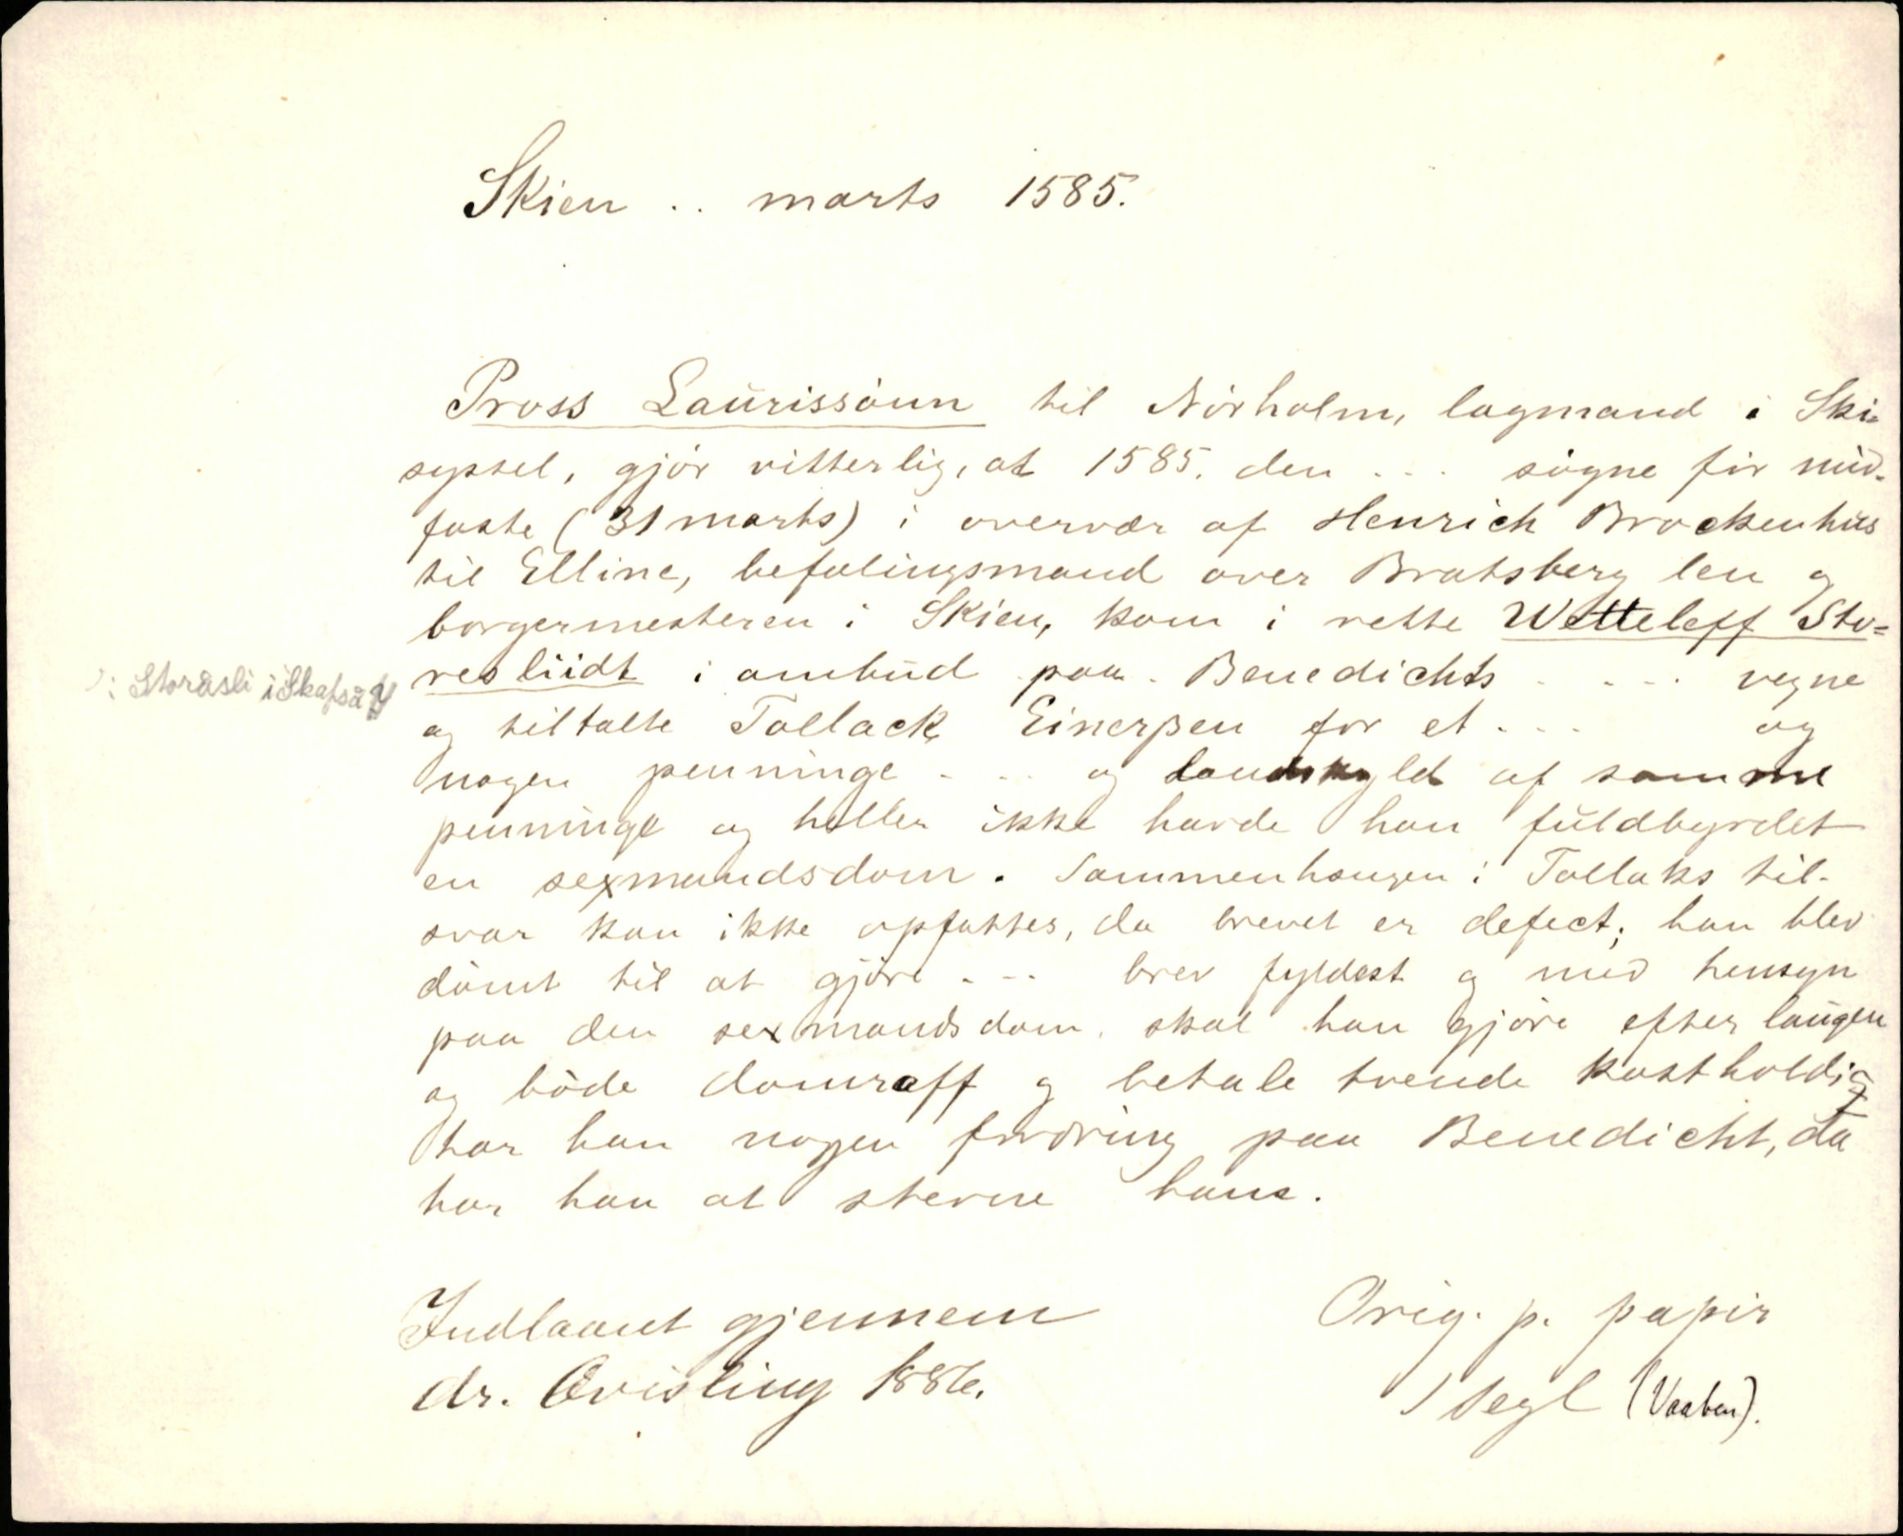 Skien .. marts 1585.
Pross Laurissönn til Nörholm, lagmand i Ski-
syssel, gjör vitterlig, at 1585. den ... sögne för mid-
faste (31 marts) i overvær af Henrich Brockenhus
til Elline, befalingsmand over Bratsberg len og
borgermesteren i Skien, kom i rette Wetteleff Sto-
resliidt i ombud paa Benedichts .... vegne
ɔ: Storåsli i Skafså
og tiltalte Tollack Einerßen for et ... og
nogen penninge ... og landskyld af samme
penninge og heller ikke havde han fuldbyrdet
en sexmandsdom. Sammenhængen i Tollaks til-
svar kan ikke opfattes, da brevet er defect; han blev
dömt til at gjöre ... brev fyldest og med hensyn
paa den sexmandsdom. skal han gjöre efter laugen
og böde domraff og betale tvende kostholdig
har han nogen fordring paa Benedicht, da
har han at stevne hans.
Indlaant gjennem
dr. Qvisling 1886.
Orig. p. papir
1 segl (Vaaben).